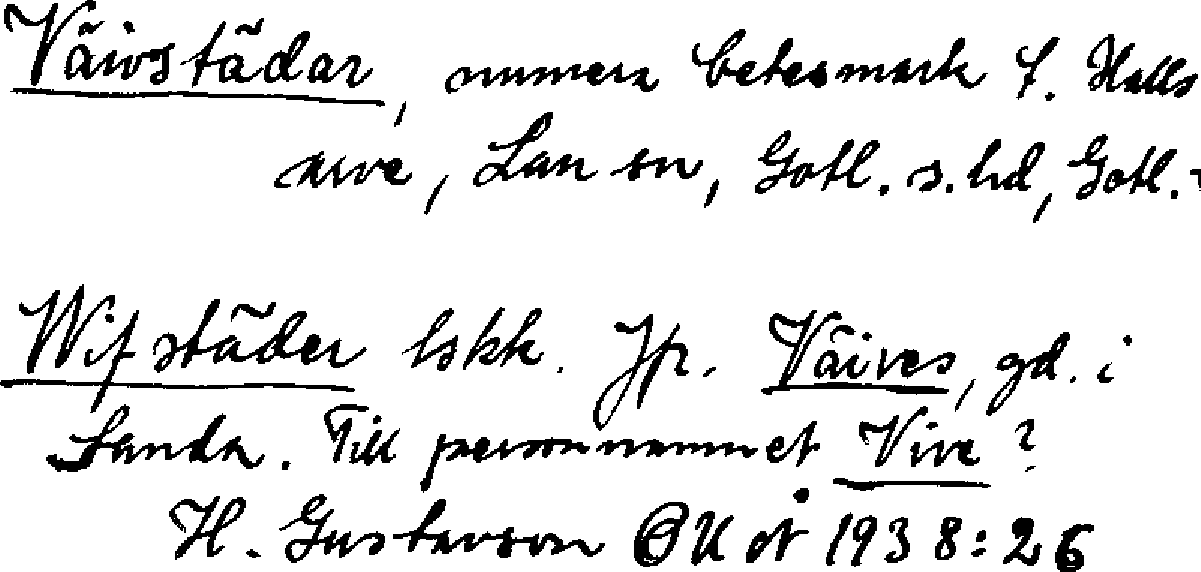 Väivstädar, numera betesmark f. Halls
arve, Lau sn, Gotl. s. hd, Gotl.
Wifstäder lskk. Jfr. Väives, gd. i
Sanda. Till personnamnet Vive?
H. Gustavson 1938:26